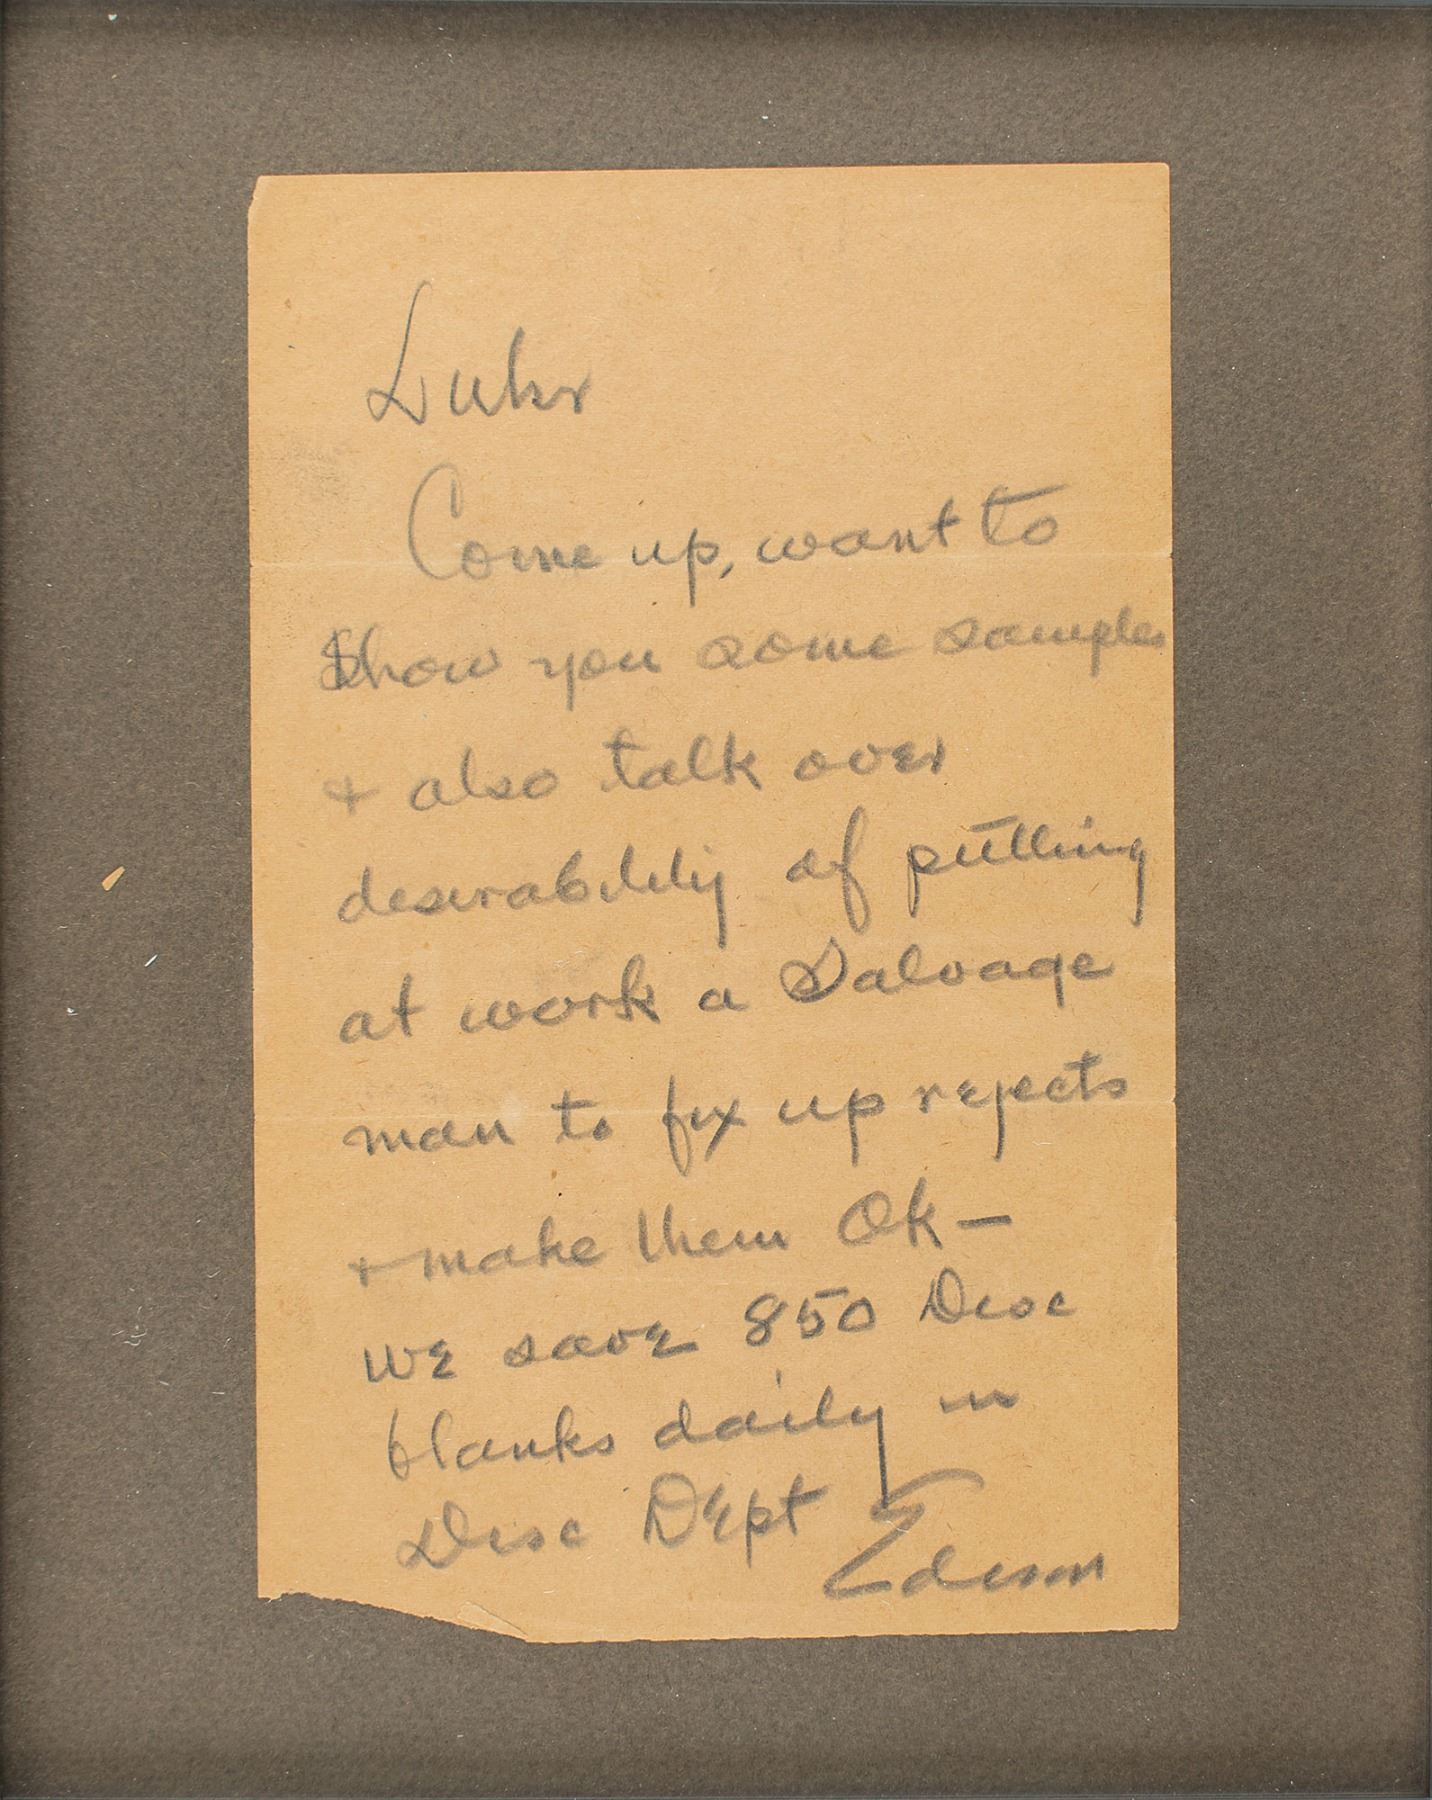 Luhr
Come up, want to
Show you some samples
+ also talk over
desirability of putting
at work a Salvage
man to fix up rejects
+ make them Ok —
we save 850 Disc
blanks daily in
Disc Dept
Edison